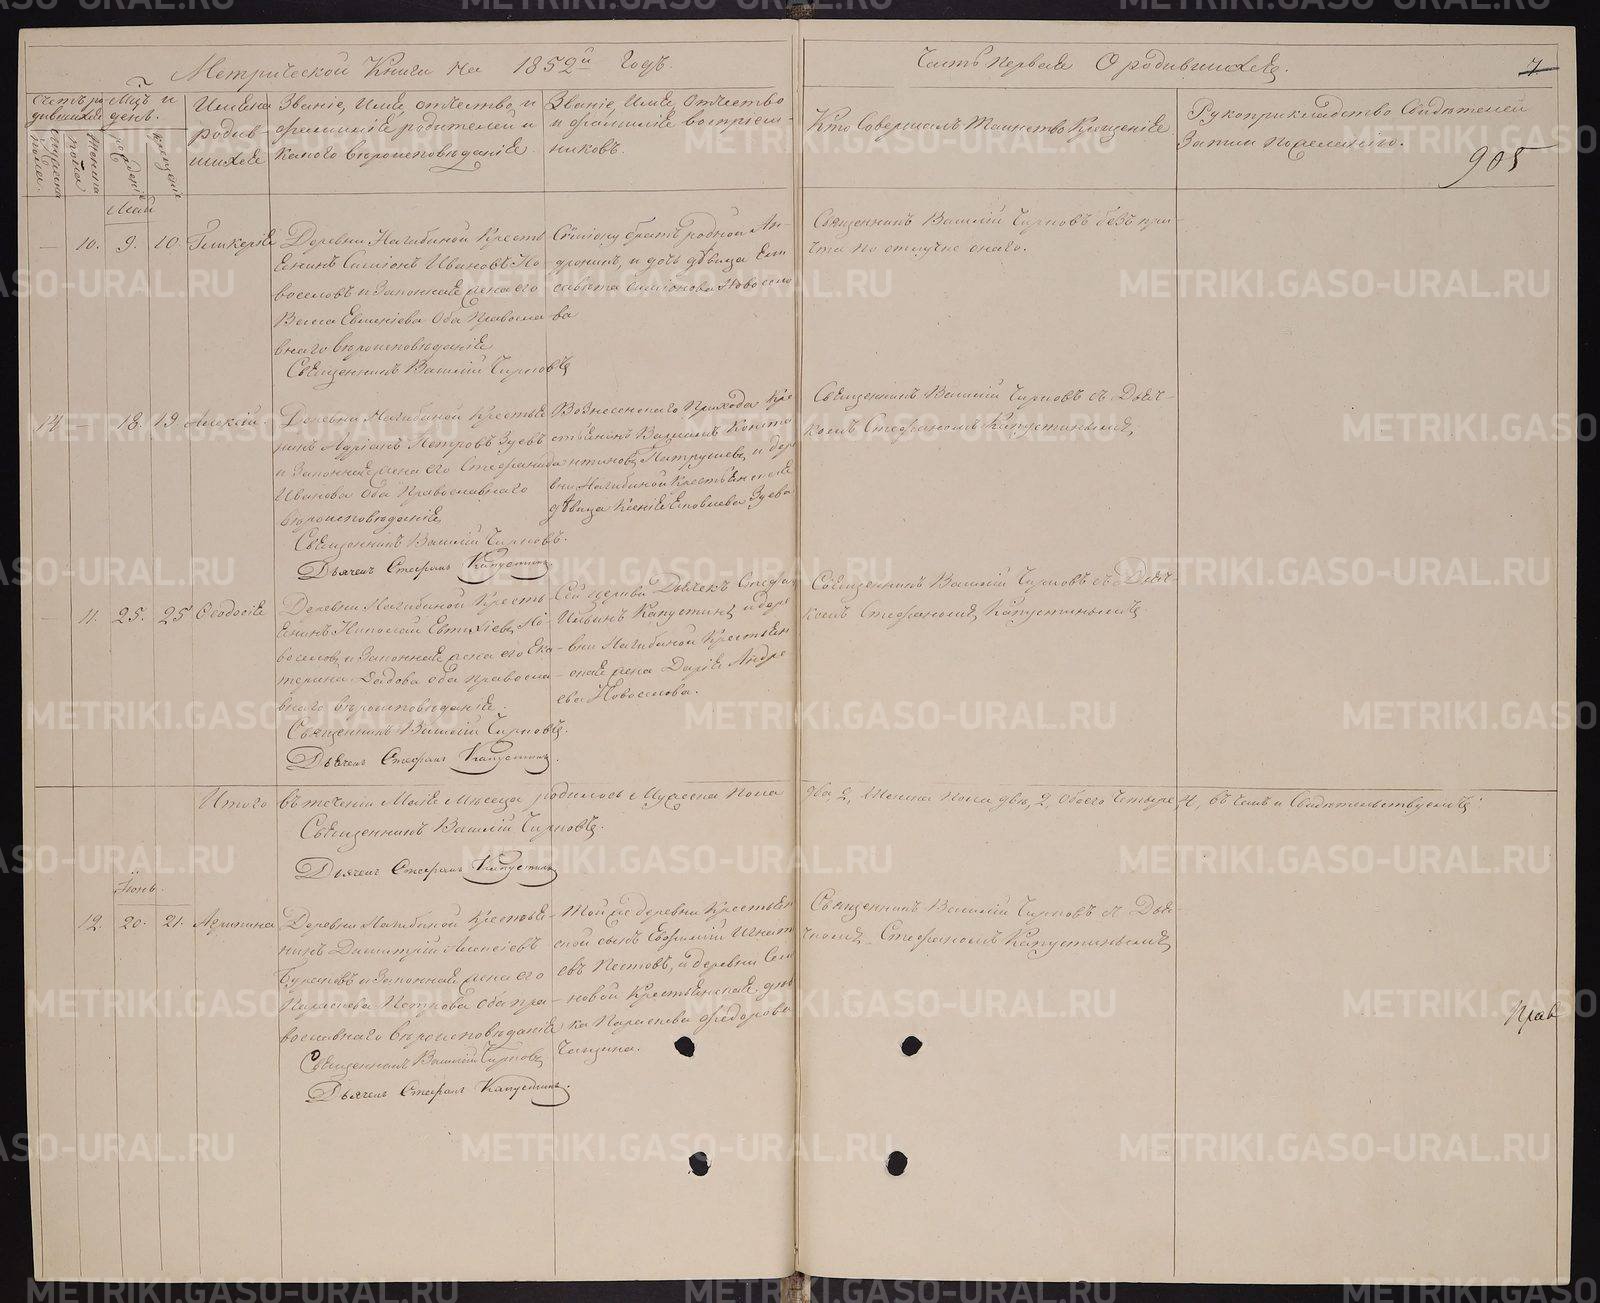 Метрической Книги на 1852й Годъ.
Часть Первая О родившихся.
7
Счетъ родившихся
Мужеска пола.
Женска пола
Мѣц и день.
рожденiе
крещенiе
Имена родившихся
Званiе, Имя, отчество, и
фамилiя родителей и
какого вѣроисповѣданiя
Званiе, Имя, Отчество
и фамилiя воспрiем-
никовъ.
Кто Совершалъ Таинство Крещенiя
Рукоприкладство Свидѣтелей
Записи по желанiю.
905
Май
— 10. 9. 10. Гликерiя
Деревни Нагибиной Кресть-
янинъ Симеонъ Ивановъ Но-
воселовъ и Законная жена его
Васса Евгенiева Оба Правосла-
внаго вѣроисповѣданiя
Священникъ Василiй Чирковъ
Симiону братъ родной Ан-
дроникъ, и дочь дѣвица Ели-
савета Симiонова Новосело-
ва
Священникъ Василiй Чирковъ безъ при-
чта по отлучке онаго.
14 — 18. 19 Алексiй.
Деревни Нагибиной Крестья-
нинъ Адрiанъ Петровъ Зуевъ
и Законная жена его Стефанида
Иванова Оба Православнаго
вѣроисповѣданiя
Священникъ Василiй Чирковъ.
Дьячекъ Стефанъ Капустинъ.
Вознесенскаго Прихода Кре-
стьянинъ Василiй Конста-
нтиновъ Патрушевъ, и дере-
вни Нагибиной Крестьянская
дѣвица Ксенiя Iовлева Зуева
Священникъ Василiй Чирковъ съ Дьяч-
комъ Стефаномъ Капустинымъ
— 11. 25. 25 Феодосiя
Деревни Нагибиной Кресть-
янинъ Николай Евтихiевъ Но-
воселовъ и Законная жена его Ека-
терина оба правосла-
внаго вѣроисповѣданiя.
Священникъ Василiй Чирковъ.
Дьячекъ Стефанъ Капустинъ.
Сей церкви Дьячекъ Стефанъ
Ильинъ Капустинъ, и дере-
вни Нагибиной Крестьян-
ская жена Дарiя Андре-
ева Новоселова.
Священникъ Василiй Чирковъ съ Дьяч-
комъ Стефаномъ Капустинымъ
Итого въ теченiи Маiя Мѣсяца родилось Мужеска пола два, 2, Женска пола двѣ, 2, Обоего Четыре 4, въ чемъ и Свидѣтельствуемъ:
Священникъ Василiй Чирковъ.
Дьячекъ Стефанъ Капустинъ
Iюнь.
12. 20. 21. Агрипина
Деревни Нагибиной Крестья-
нинъ Димитрiй Алексiевъ
и Законная жена его
Параскева Петрова оба пра-
вославнаго вѣроисповѣданiя
Священникъ Василiй Чирковъ
Дьячекъ Стефанъ Капустинъ.
Той же деревни Крестьян-
ской сынъ Евфимiй Игнатi-
евъ Пестовъ, и деревни
Крестьянская дѣв-
ка Параскева Федорова
Священникъ Василiй Чирковъ съ Дьяч-
комъ Стефаномъ Капустинымъ
Прав
METRIKI.GASO-URAL.RU